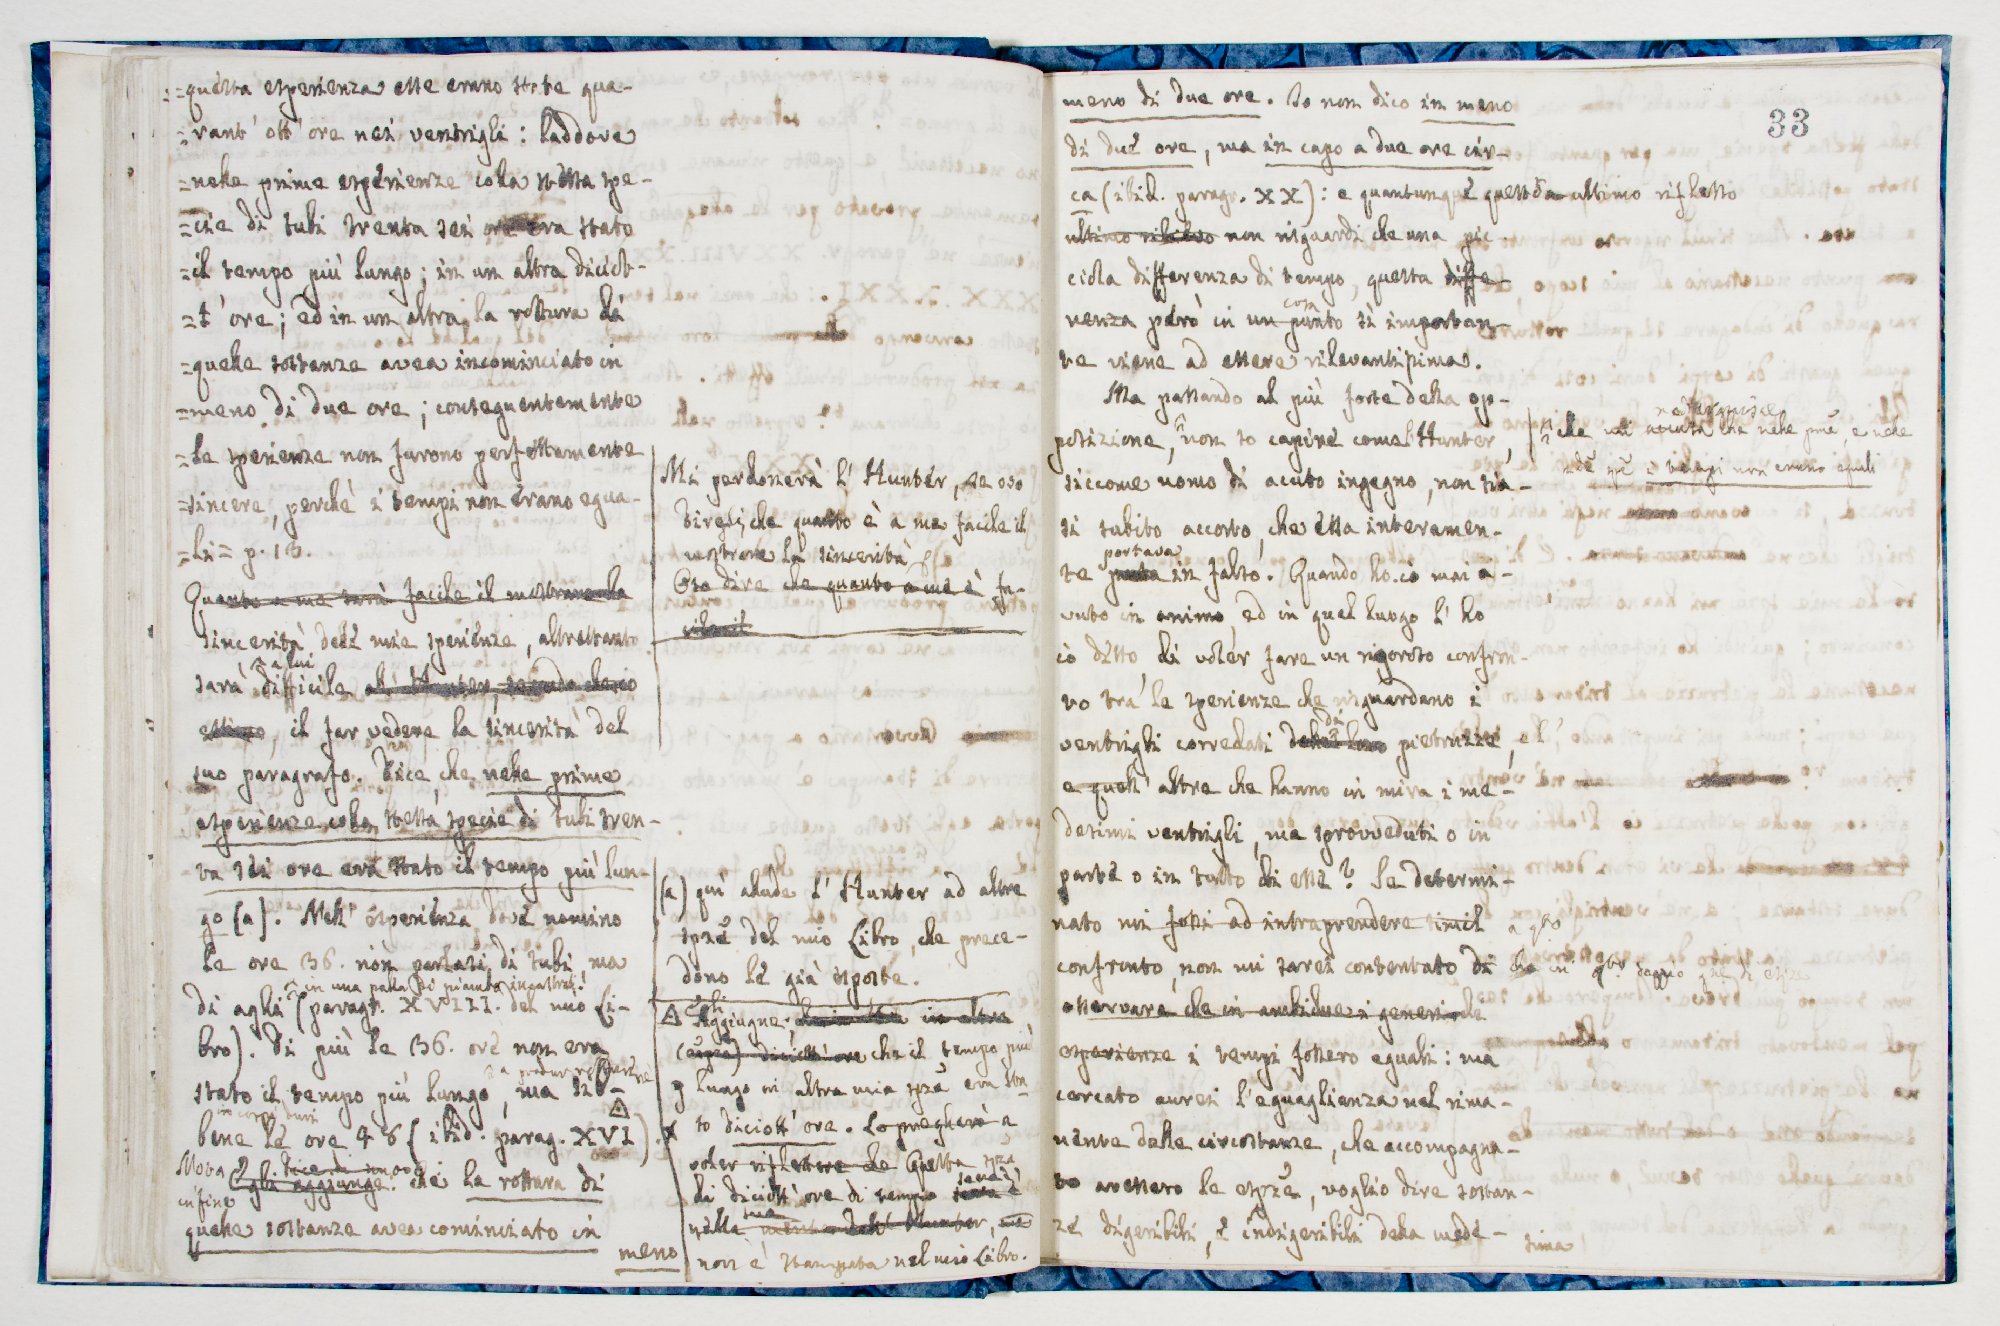 =questa esperienza esse erano state qua-
=rant' ott' ore nei ventrigli: laddove
=nelle prime esperienze colla stessa spe-
=cie di tubi trenta sei ore era stato
=il tempo più lungo; in un altra diciot-
=t' ore; ed in un altra, la rottura di
=quelle sostanze avea incominciato in
=meno di due ore; conseguentemente
=le sperienze non furono perfettamente
=sincere, perchè i tempi non erano egua-
=li= p. 13.
Quanto a me sarà facile il mostrare la
sincerità delle mie sperienze, altrettanto
sarà a lui difficile all' Hunter, secondo che io
estimo, il far vedere la sincerità del
suo paragrafo. Dice, che nelle prime
esperienze colla stessa specie di tubi tren-
ta sei ore era stato il tempo più lun-
go (a). Nell' esperienza dove nomino
le ore 36. non parlasi di tubi, ma
di agli in una palla di piombo (paragr. XVIII. del mio Li-
bro). Di più le 36. ore non era
stato il tempo più lungo, ma sib-
bene le ore 48 (ibid. parag. XVI).
in corpi duri
infine
Egli aggiunge: dice di nuovo che la rottura di
quelle sostanze avea cominciato in
meno
Mi perdonerà l' Hunter, se oso
dirgli, che quanto è a me facile il
mostrare la sincerità
Oso dire che quanto a me è fa-
cile il
(a) quì allude l' Hunter ad altre
spze del mio Libro, che prece-
dono le già esposte.
Aggiugne in altra
diciott' ore che il tempo più
lungo in altra mia spza era sta-
to diciott' ore. Lo pregherei a
voler riflettere che Questa spza
di diciott' ore di tempo sarà
nella sua mente dell' Hunter, ma
non è stampata nel mio Libro.
33
meno di due ore. Io non dico in meno
di due ore, ma in capo a due ore cir-
ca (ibid. paragr. XX): e quantunque quest' ultimo riflesso
ultimo rilievo non riguardi che una pic-
ciola differenza di tempo, questa diffe-
renza però in un punto cosa sì importan-
te viene ad essere rilevantissima.
Ma passando al più forte della op-
posizione, non so capire come l'Hunter,
che mi accusa che nelle pme, e nelle
i tempi non erano eguali
siccome uomo di acuto ingegno, non sia-
si subito accorto, che essa interamen-
te portava in falso. Quando ho io mai a-
vuto in animo ed in qual luogo l' ho
io detto, di voler fare un rigoroso confron-
to tra le sperienze che riguardano i
ventrigli corredati delle loro di pietruzze,
e quell' altre che hanno in mira i me-
desimi ventrigli, ma sprovveduti o in
parte o in tutto di esse? Se determi-
nato mi fossi ad intraprendere simil
a qsto
confronto, non mi sarei contentato di
osservare che in ambidue i generi di
esperienze i tempi fossero eguali: ma
cercato aurei l'eguaglianza nel rima-
nente delle circostanze, che accompagna-
to avessero le espze, voglio dire sostan-
ze digeribili, e indigeribili della mede-
sima